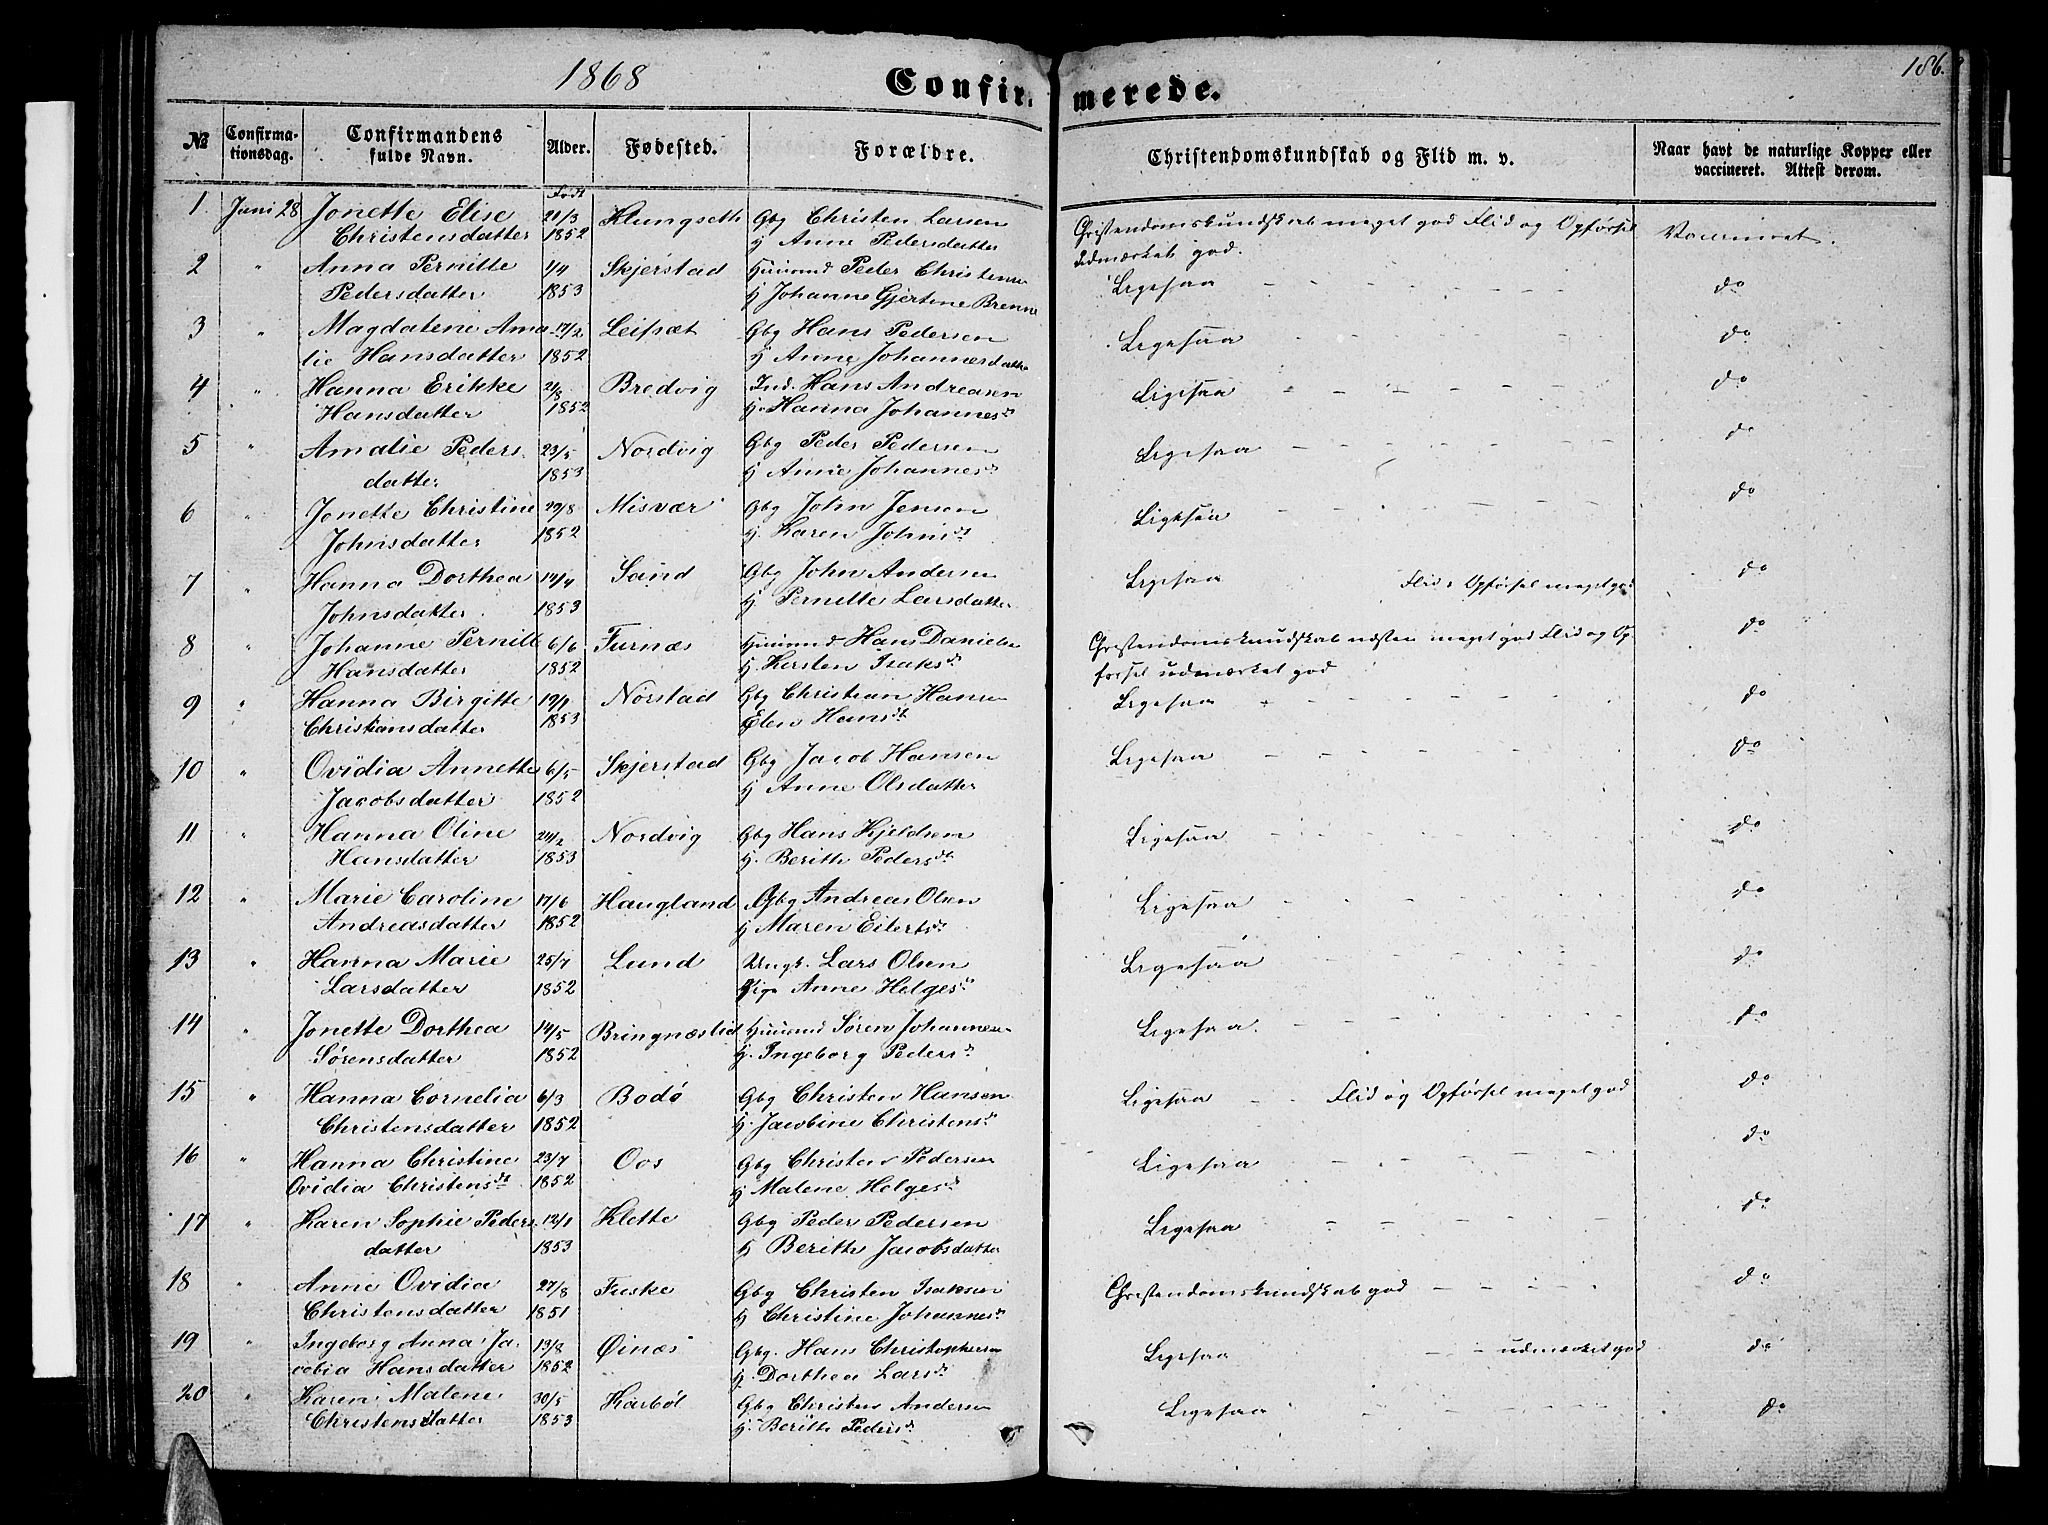 1868
Confirmerede.
186.
№ Confirmationsdag. Confirmandens fulde Navn. Alder. Fødested. Forældre. Christendomskundskab og Flid m. v. Naar havt de naturlige Kopper eller vaccineret. Attest derom.
Født
1 Juni 28 Jonette Elise 21/3 Klungseth Gbg Christen Larsen Christendomskundskab meget god Flid og Opførsel Vaccineret.
Christensdatter 1852 H Anne Pedersdatter udmærket god.
2 " Anna Pernille 1/4 Skjerstad Huusmd Peder Christensen Ligesaa - - - - - do
Pedersdatter 1853 H Johanne Gjertine Brenne
3 " Magdalene Ama 17/2 Leifsæt Gbg Hans Pedersen Ligesaa - - - - - do
lie Hansdatter 1852 H Anne Johannesdatter
4 " Hanna Erikke 21/8 Bredvig Ind. Hans Andreasen Ligesaa - - - - - do
Hansdatter 1852 H. Hanna Johannesdt
5 " Amalie Peders 23/5 Nordvig Gbg Peder Pedersen Ligesaa - - - - - do
datter 1853 H Anne Johannesdt
6 " Jonette Christine 29/8 Misvær Gbg John Jensen Ligesaa - - - - - do
Johnsdatter 1852 H. Karen Johnsdt
7 " Hanna Dorthea 14/4 Sand Gbg John Andersen Ligesaa Flid & Opførsel meget god do
Johnsdatter 1853 H Pernille Larsdatter
8 " Johanne Pernille 6/6 Furnæs Huusmd Hans Danielsen Christendomskundskab næsten meget god Flid og Op- do
Hansdatter 1852 H. Kersten Isaksdt førsel udmærket god
9 " Hanna Birgitte 19/1 Nørstad Gbg Christian Hansen Ligesaa - - - - - do
Christiansdatter 1853 Elen Hansdt
10 " Ovidia Annette 6/5 Skjerstad Gbg Jacob Hansen Ligesaa - - - - - do
Jacobsdatter 1852 H Anne Olsdatter
11 " Hanna Oline 24/2 Nordvig Gbg Hans Kjeldsen Ligesaa - - - - - do
Hansdatter 1853 H. Berith Pedersdt
12 " Marie Caroline 17/6 Haugland Gbg Andreas Olsen Ligesaa - - - - - do
Andreasdatter 1852 H Maren Eilertsdt
13 " Hanna Marie 25/7 Lund Ungk. Lars Olsen Ligesaa - - - - - do
Larsdatter 1852 Pige Anne Helgesdt
14 " Jonette Dorthea 14/5 Bringnæslid Huusmd Søren Johannesen Ligesaa. - - - - - do
Sørensdatter 1852 H. Ingeborg Pedersdt
15 " Hanna Cornelia 6/3 Bodø Gbg Christen Hansen Ligesaa - - Flid og Opførsel meget god do
Christensdatter 1852 H. Jacobine Christensdt
16 " Hanna Christine 23/7 Oos Gbg Christen Pedersen Ligesaa - - - - - do
Ovidia Christensdt 1852 H Malene Helgesdt
17 " Karen Sophie Peders 12/1 Klette Gbg Peder Pedersen Ligesaa - - - - - do
datter 1853 H Berith Jacobsdatter
18 " Anne Ovidia 27/8 Fuske Gbg Christen Isaksen Christendomskundskab god - - - - do
Christensdatter 1851 H Christine Johannesdt
19 " Ingeborg Anna Ja- 13/8 Øinæs Gbg. Hans Christophersen Ligesaa - - - udmærket god do
cobia Hansdatter 1852 H. Dorthea Larsdt
20 " Karen Malene 30/5 Karbøl Gbg Christen Andersen Ligesaa - - - - - do
Christensdatter 1853 H. Berith Pedersdt